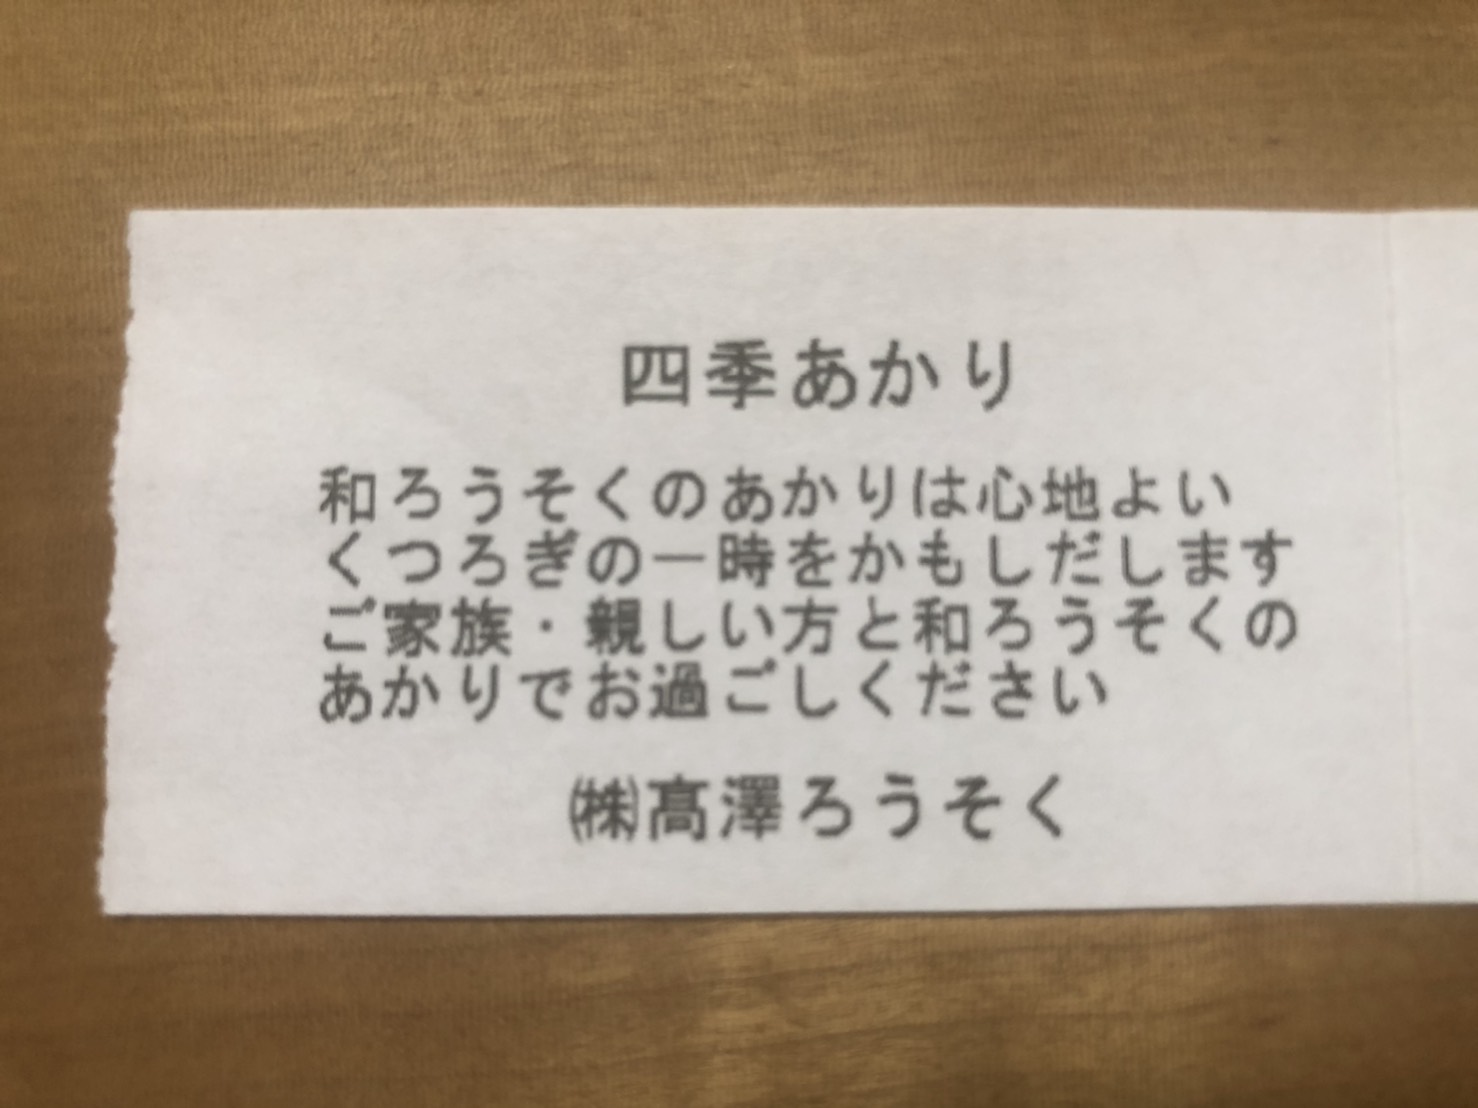 四季あかり
和ろうそくのあかりは心地よい
くつろぎの一時をかもしだします
ご家族・親しい方と和ろうそくの
あかりでお過ごしください
㈱髙澤ろうそく